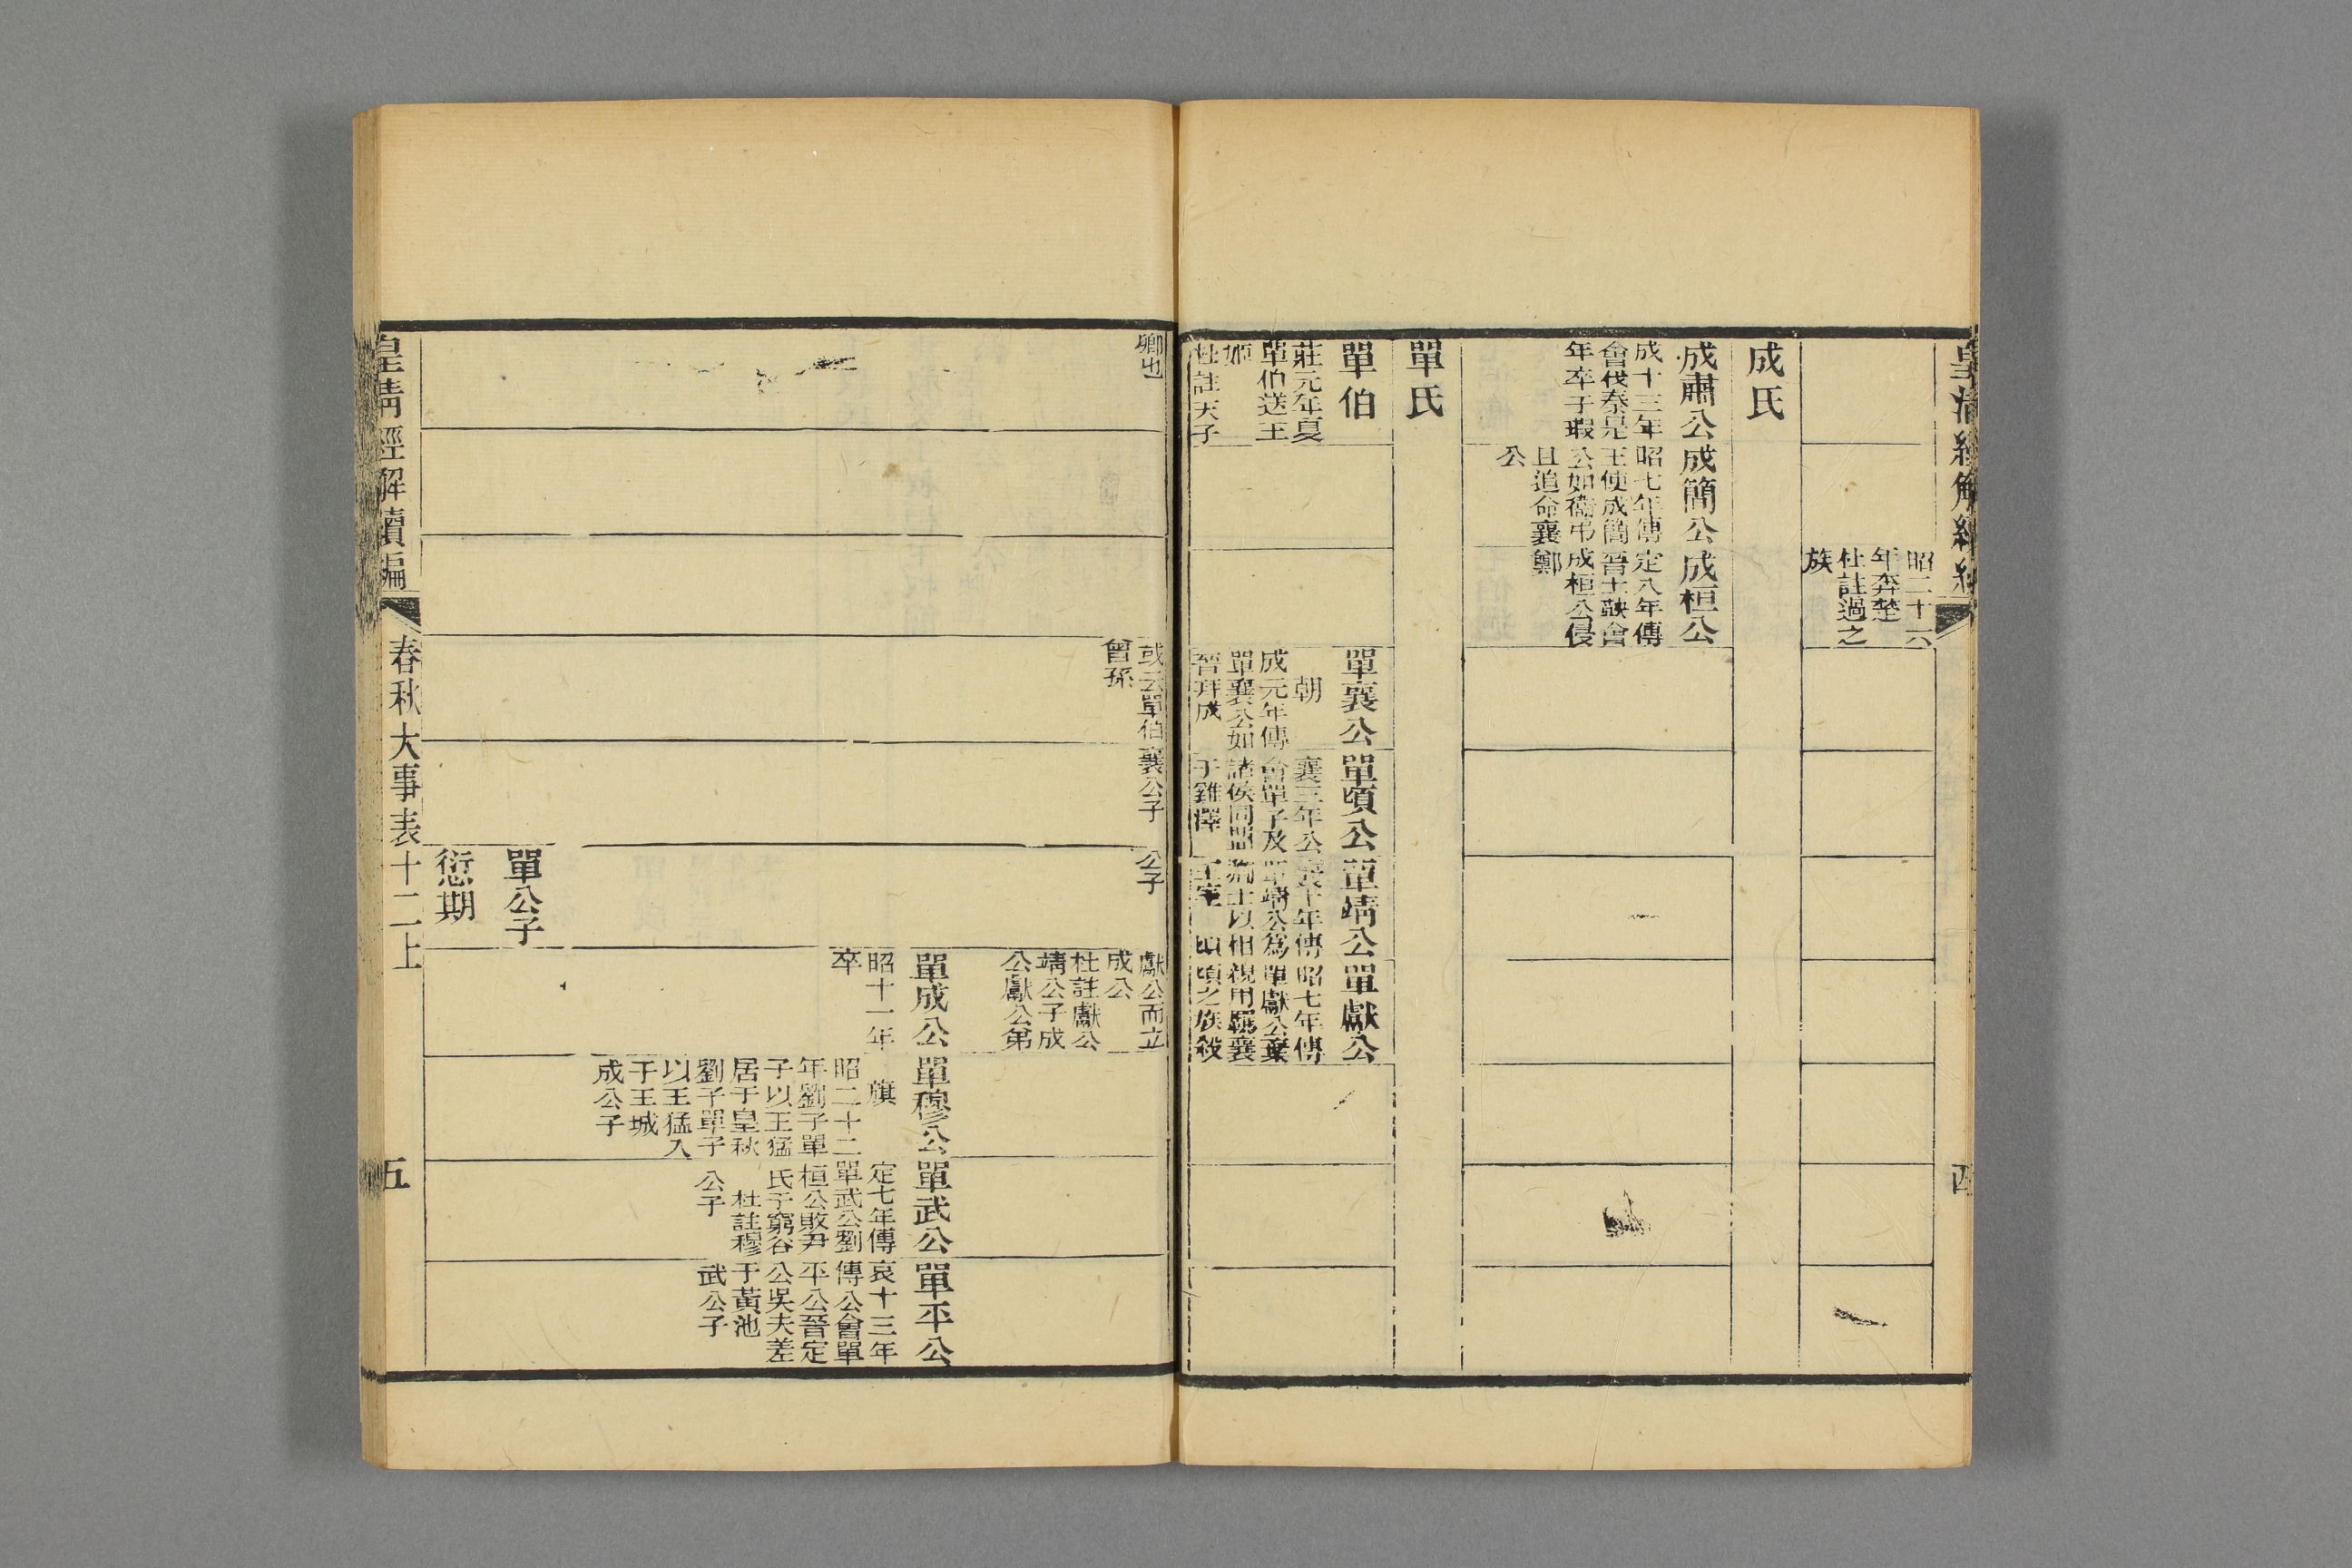 昭二十六
年奔楚
杜註過之
族
成氏
成肅公
成十三年
會伐秦是
年卒于瑕
成簡公
昭七年傳
王使成簡
公如衞弔
且追命襄
公
成桓公
定八年傳
晉士鞅會
成桓公侵
鄭
單氏
單伯
莊元年夏
單伯送王
姬
杜註天子
單襄公
朝
成元年傳
單襄公如
晉拜成
單頃公
襄三年公
會單子及
諸侯同盟
于雞澤
單靖公
襄十年傳
單靖公爲
卿士以相
王室 頃
單獻公
昭七年傳
單獻公棄
親用羈襄
頃之族殺
卿也
或云單伯
曾孫
襄公子
公子
獻公而立
成公
杜註獻公
靖公子成
公獻公弟
單成公
昭十一年
卒
單穆公
旗
昭二十二
年劉子單
子以王猛
居于皇秋
劉子單子
以王猛入
于王城
成公子
單武公
定七年傳
單武公劉
桓公敗尹
氏于窮谷
杜註穆
公子
單平公
哀十三年
傳公會單
平公晉定
公吳夫差
于黃池
武公子
單公子
愆期
皇清經解續編
春秋大事表十二上
五